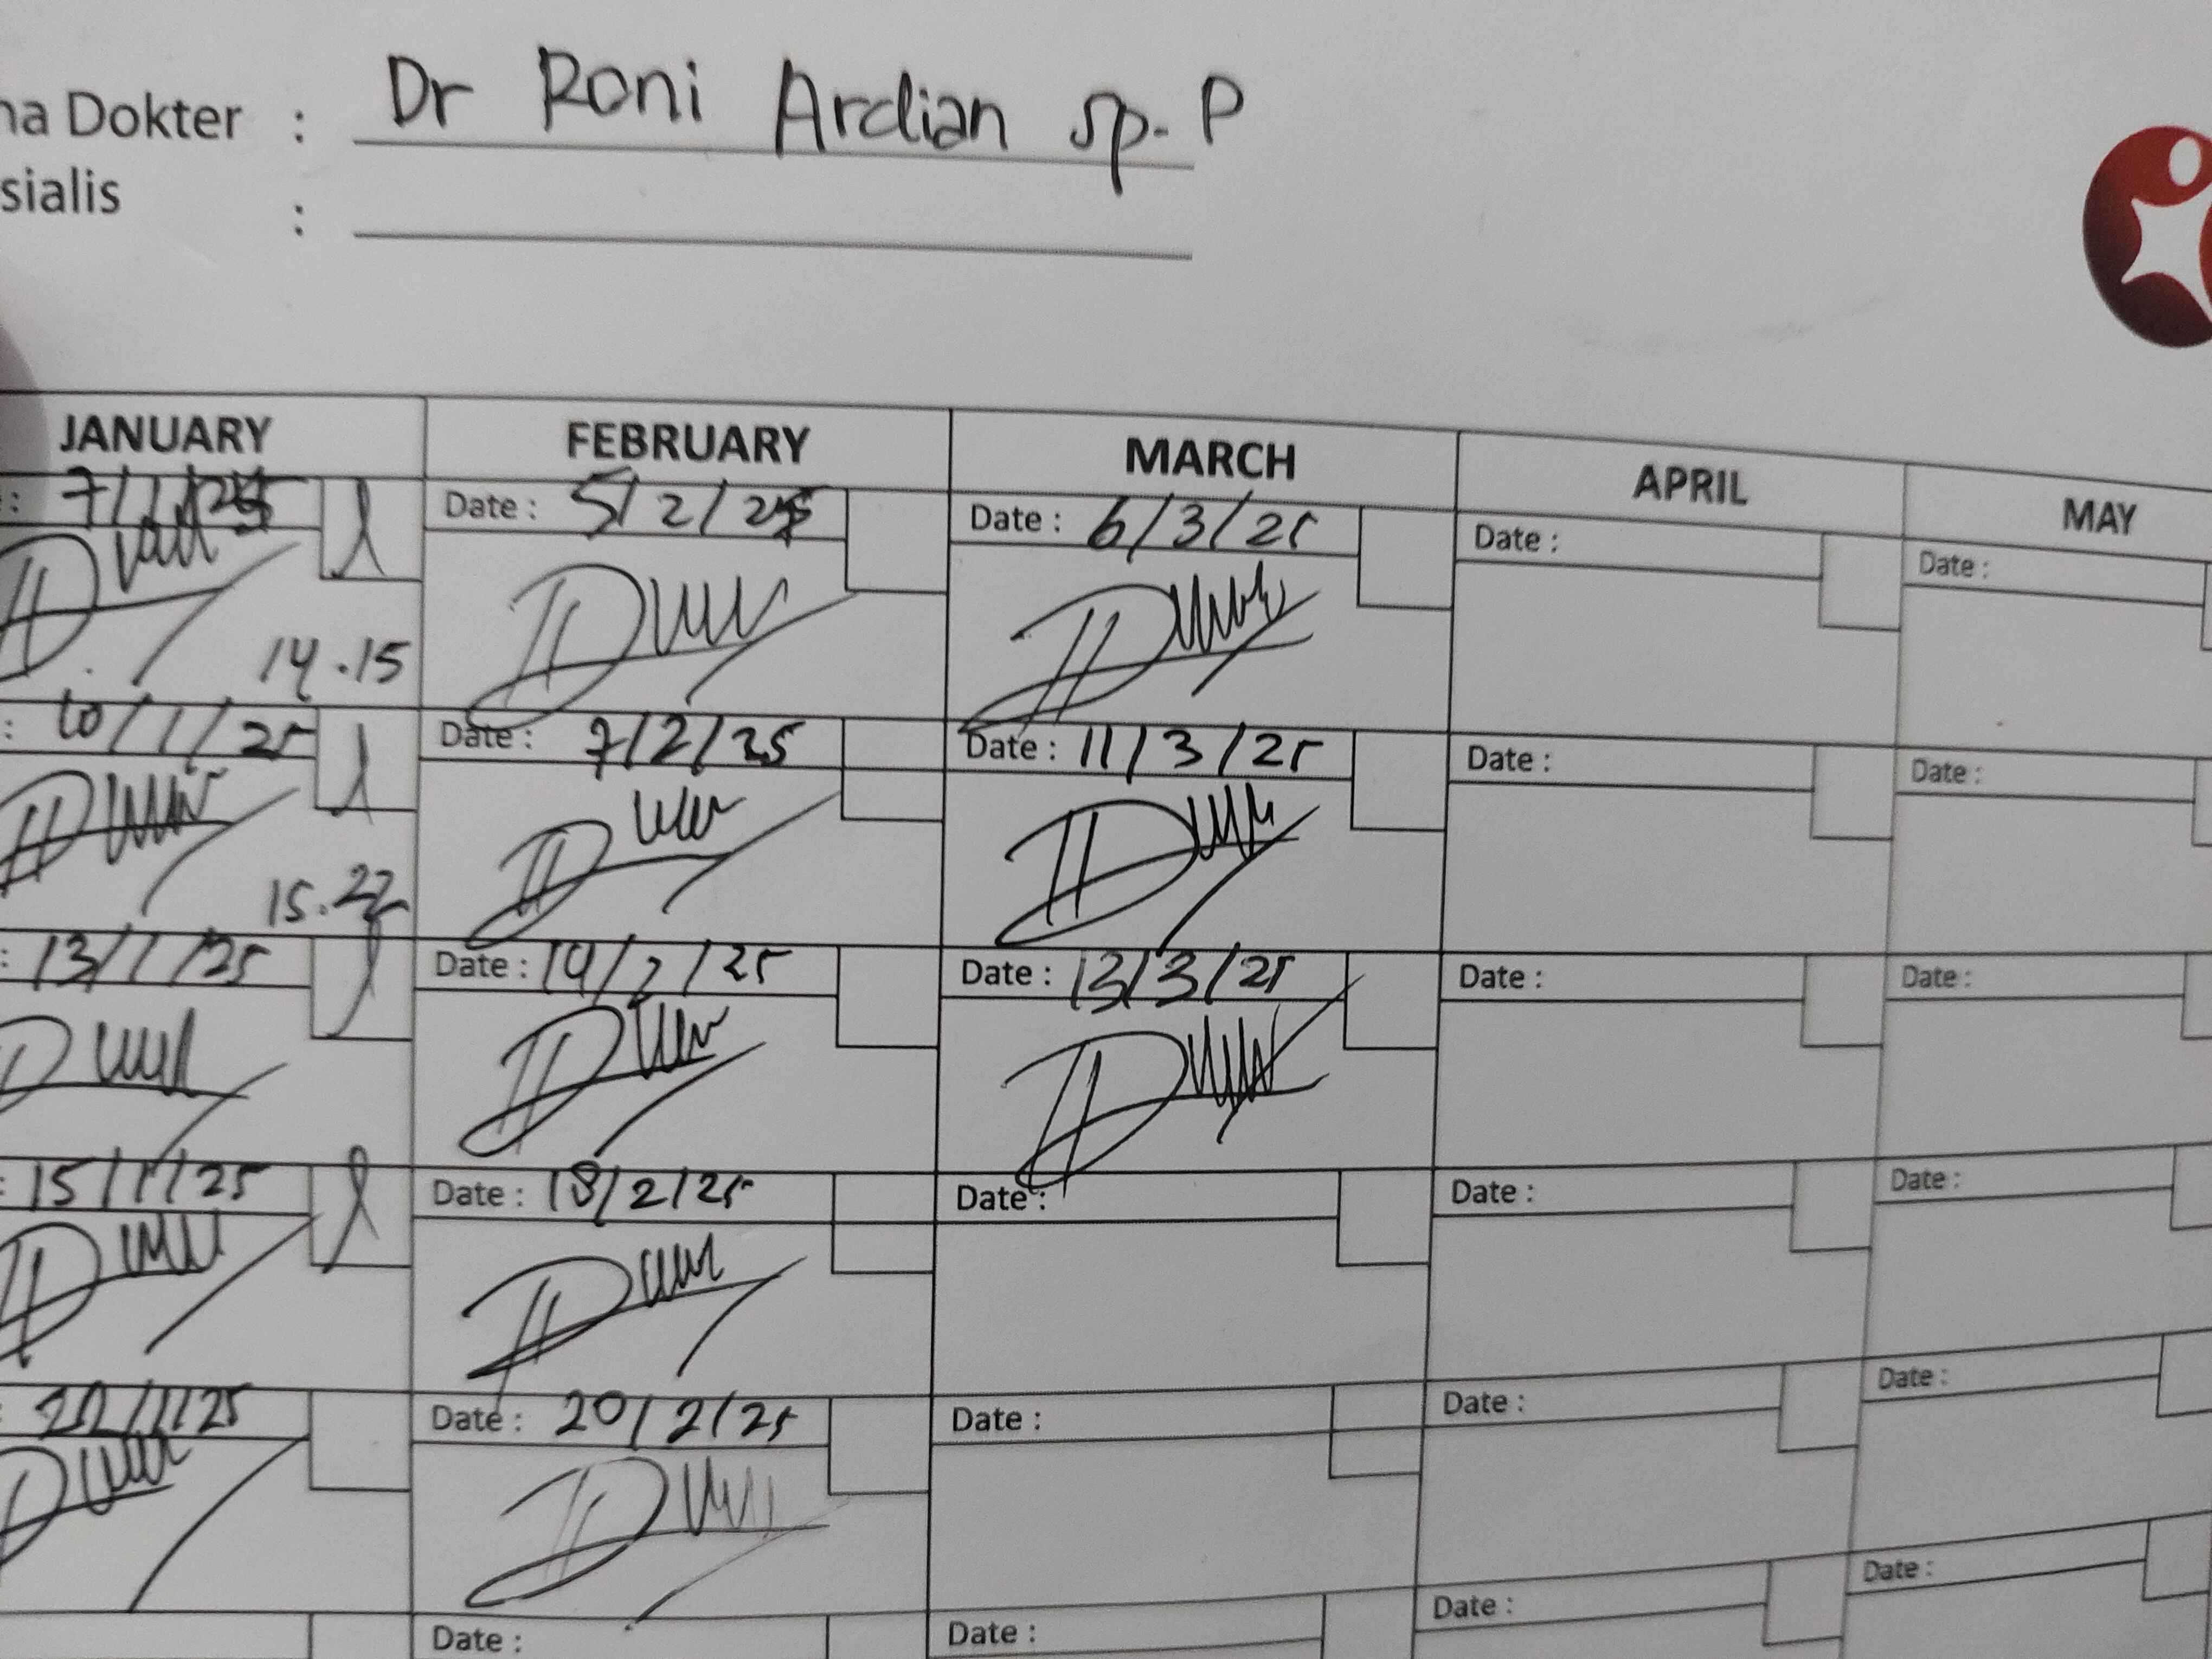 na Dokter : Dr Roni Ardian sp. P
sialis :
JANUARY FEBRUARY MARCH APRIL MAY
: 7/1/25 Date : 5/2/25 Date : 6/3/25 Date : Date :
14.15
: 10/1/25 Date : 7/2/25 Date : 11/3/25 Date : Date :
15.22
: 13/1/25 Date : 14/2/25 Date : 13/3/25 Date : Date :
: 15/1/25 Date : 18/2/25 Date : Date : Date :
: /1/25 Date : 20/2/25 Date : Date : Date :
Date : Date : Date : Date :